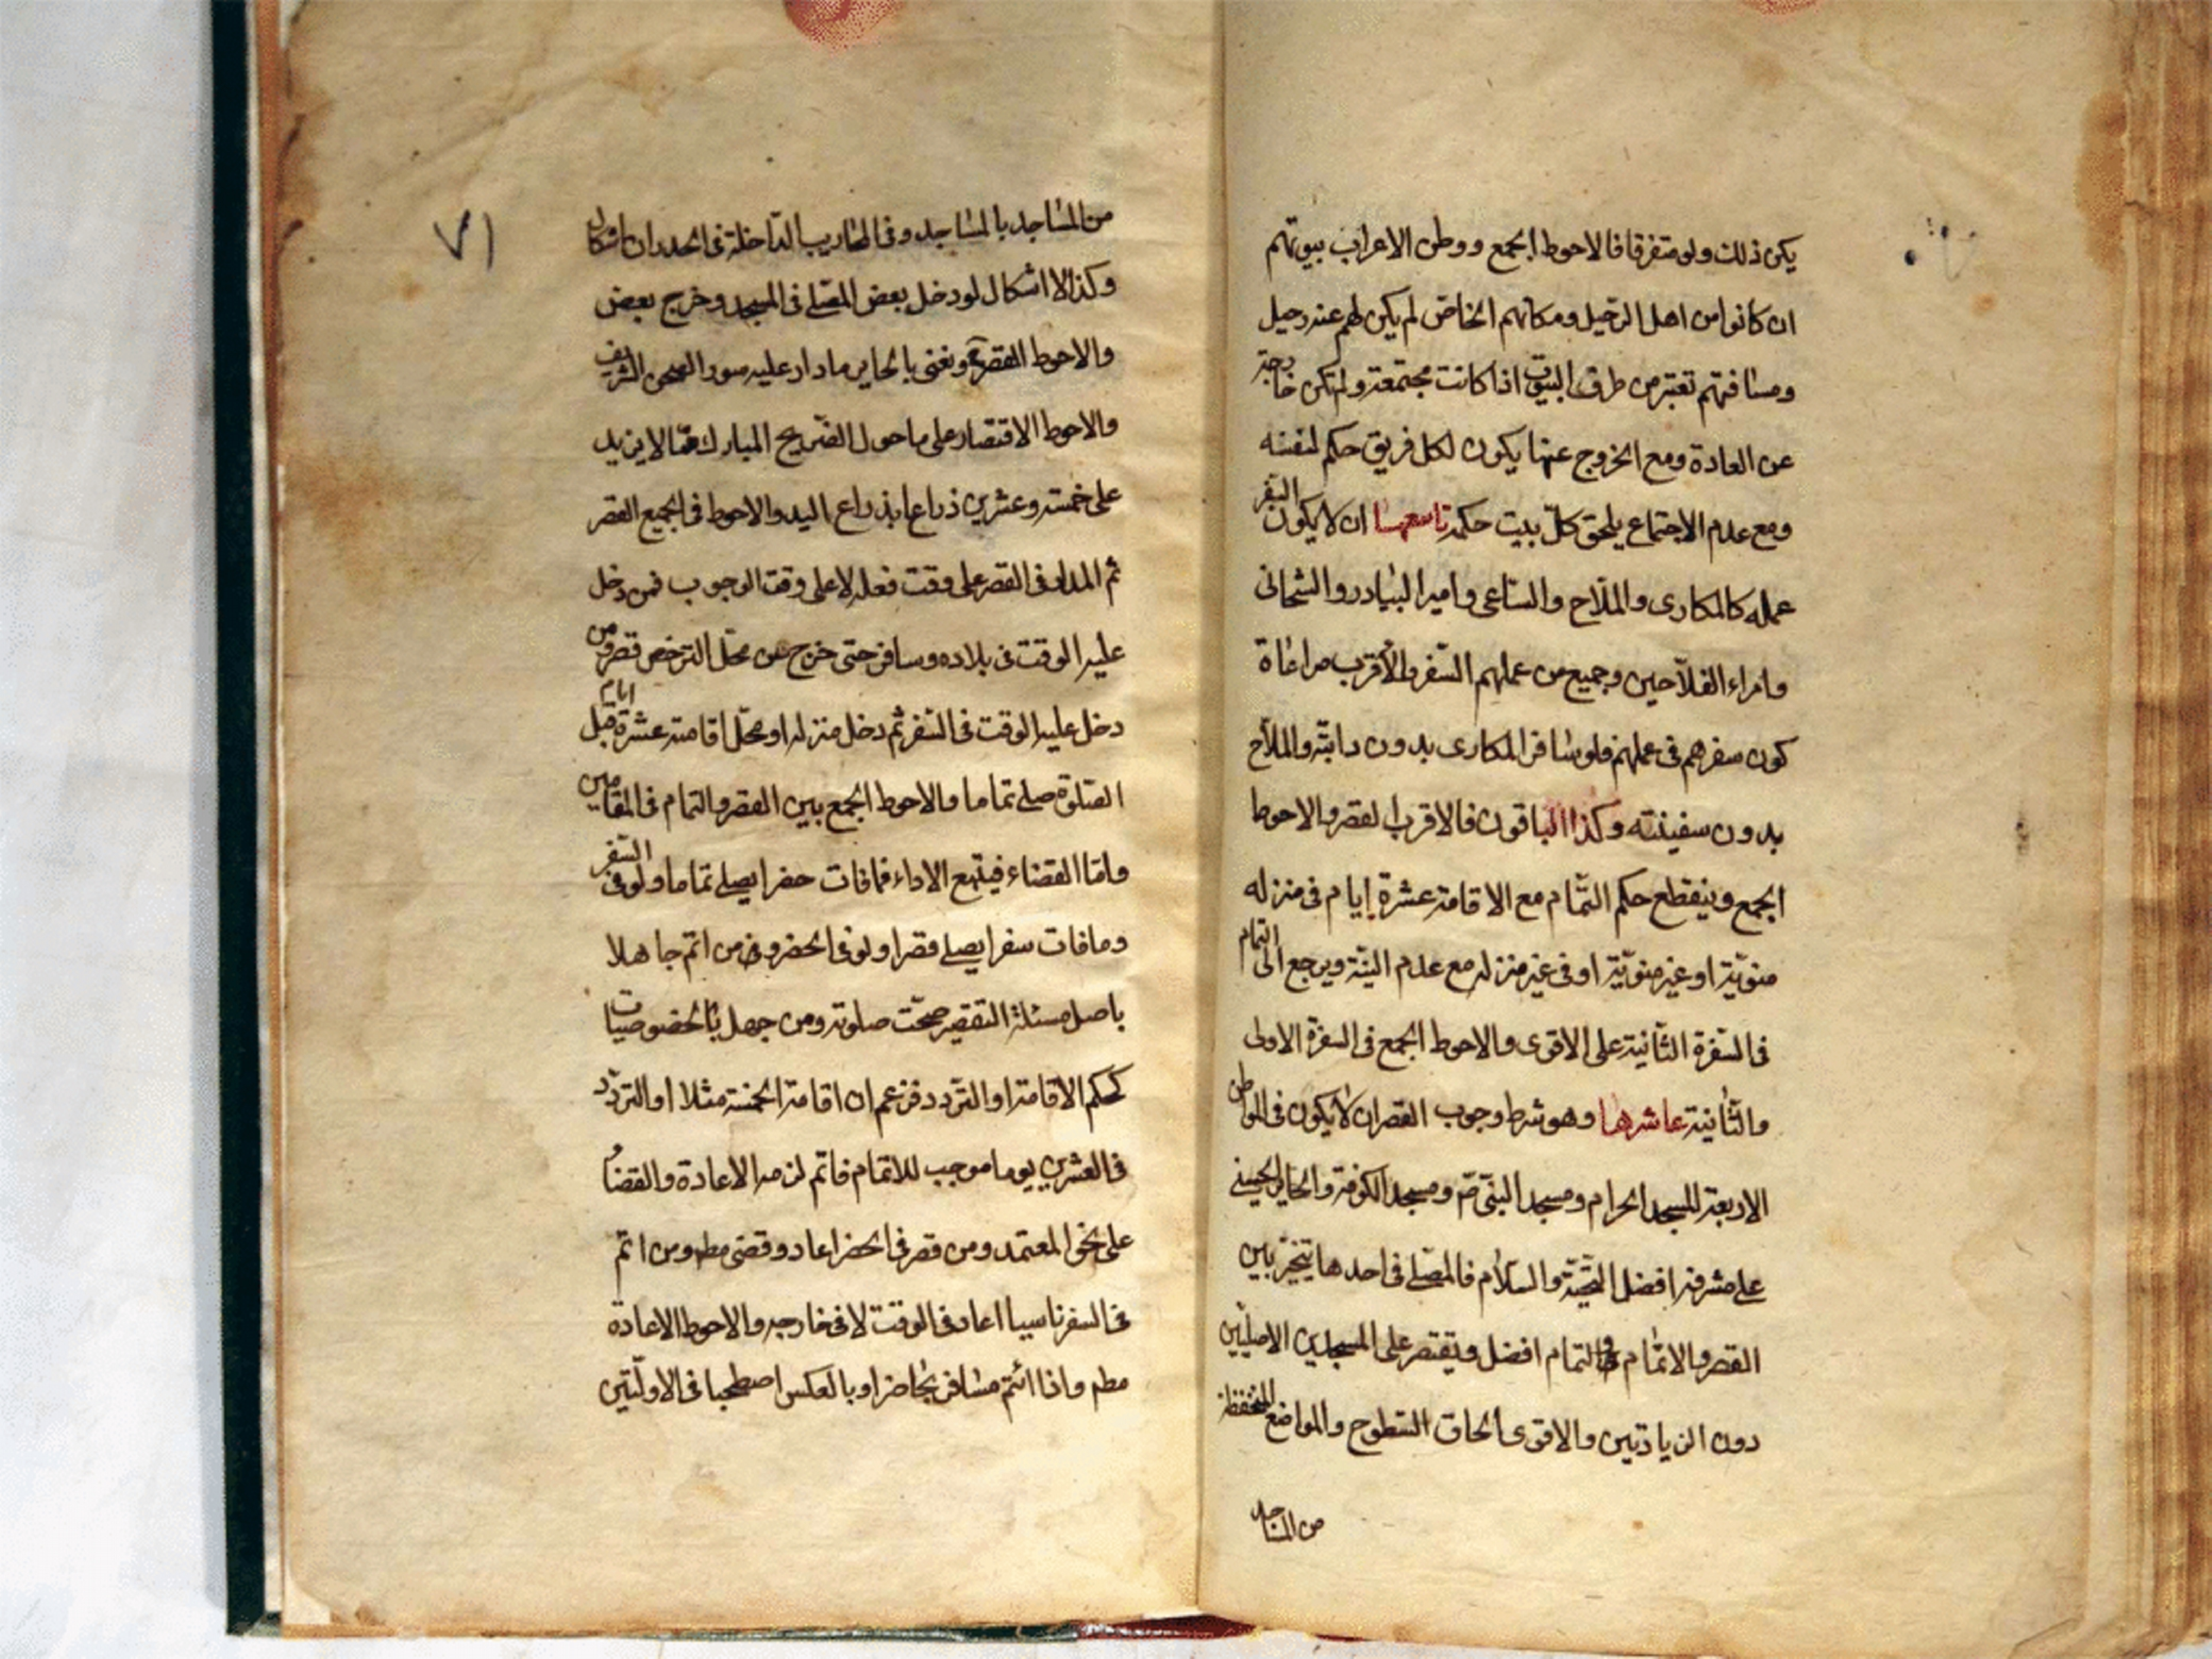 يكن ذلك ولو متفرقا فالاحوط الجمع ووطن الاعراب بيوتهم
ان كانوا من اهل الرحيل ومكانهم الخاص لم يكن لهم عند رحيل
ومسافتهم تعتبر من طرف البيوت اذا كانت مجتمعة ولم تكن خارجة
عن العادة ومع الخروج عنها يكون لكل فريق حكم لنفسه
ومع عدم الاجتماع يلحق كلّ بيت حكمه تاسعها ان لا يكون السفر
عمله كالمكارى والملّاح والسّاعى وامير البيادر والشحانى
وامراء الفلّاحين وجميع من عملهم السّفر والأقرب مراعاة
كون سفرهم فى عملهم فلو سافر المكارى بدون دابّته والملّاح
بدون سفينته وكذا الباقون فالاقرب القصر والاحوط
الجمع وينقطع حكم التّمام مع الاقامة عشرة ايام فى منزله
منويّة او غير منويّة او فى غير منزله مع عدم النيّة ويرجع الى التمام
فى السّفرة الثّانية على الاقوى والاحوط الجمع فى السفرة الاولى
والثّانية عاشرها وهو شرط وجوب القصر ان لا يكون فى المواطن
الاربعة المسجد الحرام ومسجد النبىّ صّ ومسجد الكوفة والحاير الحسينى
على مشرفه افضل التحيّة والسّلام فالمصّلى فى احدها يتخيّر بين
القصر والاتمام والتمام افضل ويقتصر على المسجدين الاصليّين
دون الزيادتين والاقوى الحاق السّطوح والمواضع المنخفظة
من المساجد
٧١
من المساجد بالمساجد وفى المحاريب الدّاخلة فى الجدران اشكال
وكذا لا اشكال لو دخل بعض المصّلى فى المسجد وخرج بعض
والاحوط القصر ونعنى بالحاير مادار عليه سور الصحن الشريف
والاحوط الاقتصار على ما حول الضّريح المبارك ممّا لا يزيد
على خمسة وعشرين ذراعا بذراع اليد والاحوط فى الجميع القصر
ثم المدار فى القصر على وقت فعله لا على وقت الوجوب فمن دخل
عليه الوقت فى بلاده وسافر حتى خرج عن محلّ الترخص قصر ومن
دخل عليه الوقت فى السّفر ثم دخل منزله او محلّ اقامته عشرة ايام قبل
الصّلوة صلى تماما والاحوط الجمع بين القصر والتمام فى المقامين
وامّا القضاء فيتبع الاداء فما فات حضرا يصلى تماما ولو فى السّفر
وما فات سفرا يصلى قصرا ولو فى الحضر ومن اتم جاهلا
باصل مسئلة التقصير صحّت صلوته ومن جهل بالخصوصيات
كحكم الاقامة او التردد فزعم ان اقامة الخمسة مثلا او التردّد
فى العشرين يوما موجب للاتمام فاتم لزمه الاعادة والقضاء
على نحو المعتمد ومن قصر فى الحضر اعاد وقضى مط ومن اتم
فى السفر ناسيا اعاد فى الوقت لا فى خارجه والاحوط الاعادة
مطم واذا ائتم مسافر بحاضر او بالعكس اصطحبا فى الاوليّتين